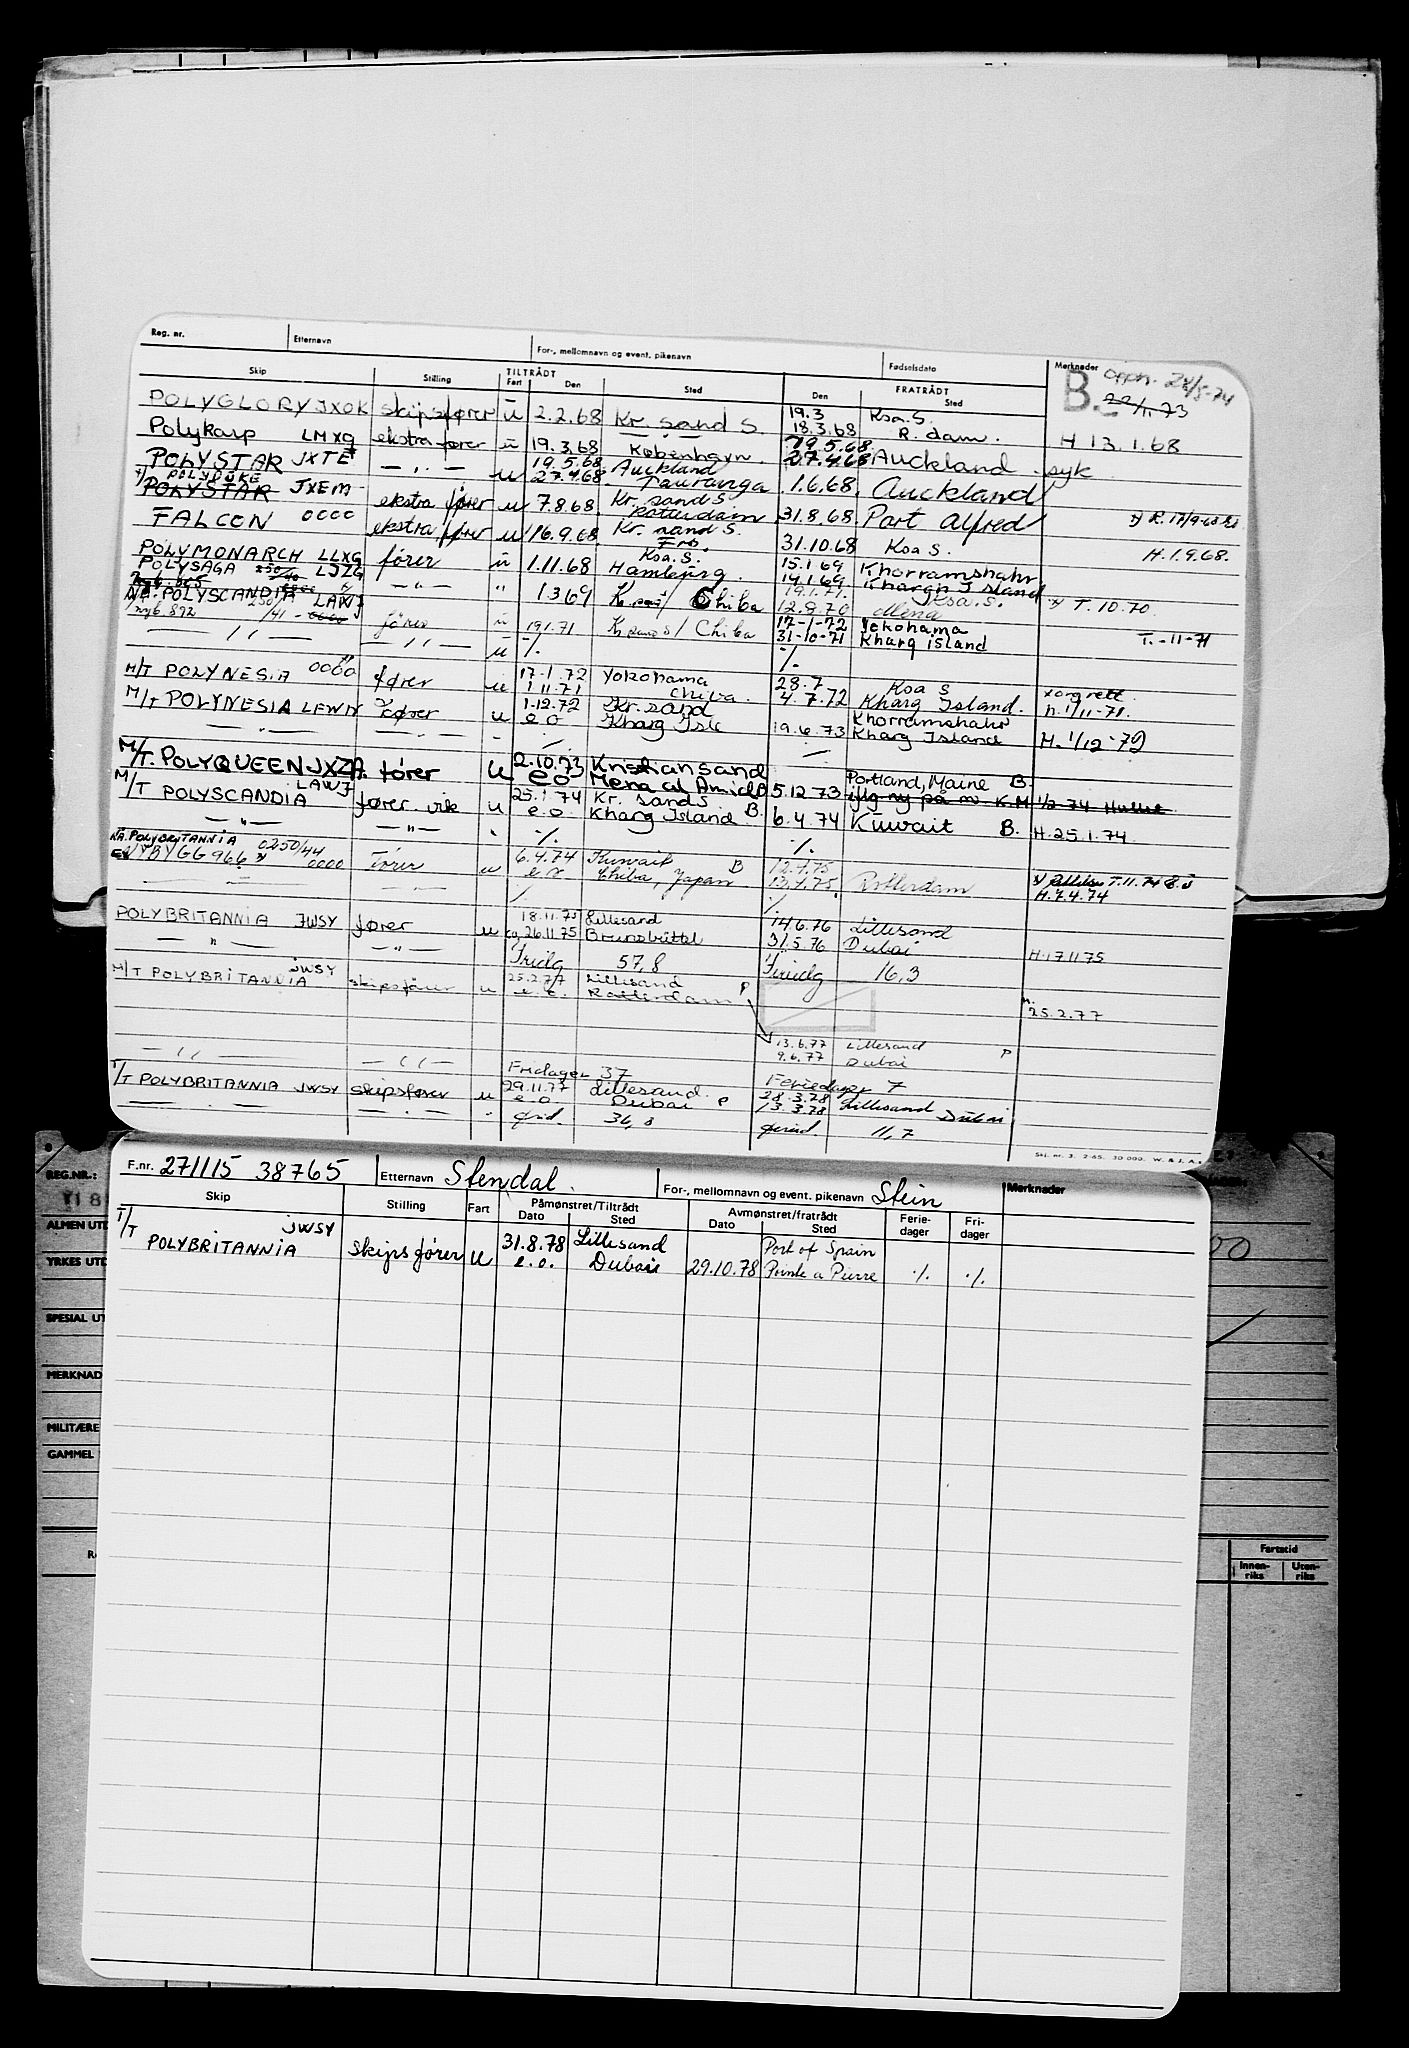 Reg. nr. Etternavn For-, mellomnavn og event. pikenavn Fødselsdato Merknader
Skip Stilling TILTRÅDT Fart Den Sted FRATRÅDT Den Sted
B. 28/5-74
22/11.73
POLYGLORY JXOK skipsfører u 2.2.68 Kr. sand S. 19.3 Ksa. S.
18.3.68 R. dam. H 13.1.68
Polykarp LMXQ ekstra fører u 19.3.68 København 19.5.68
27.4.68 Auckland syk
POLYSTAR JXTE — " — u 19.5.68 Auckland
27.4.68 Tauranga 1.6.68 Auckland
T/ POLYDUKE
POLYSTAR JXEM ekstra fører u 7.8.68 Kr. sand S.
Rotterdam 31.8.68 Port Alfred
FALCON 0000 ekstra fører u 16.9.68 Kr. sand S. 31.10.68 Ksa S. H.1.9.68.
POLYMONARCH LLXG fører u 1.11.68 Ksa. S.
Hamburg. 15.1.69 Khorramshahr
14.1.69 Khargh Island
POLYSAGA LJZG — " — " 1.3.69 / Chiba 19.1.71. Ksa. S.
12.8.70 Mena T. 10.70
POLYSCANDIA LAWJ
nyb. 892 fører u 19.1.71 / Chiba 17-1-72 Yokohama
31-10-71 Kharg island T.-11-71
— " — — " — u ./. ./.
M/T POLYNESIA 0000 fører u 17.1.72 Yokohama
1.11.71 Chiba. 28.7 Ksa S
4.7.72 Kharg Island. h. 1/11-71.
M/T POLYNESIA LEWN fører u 1.12.72 Kr. sand
e o Kharg Isle 19.6.73 Khorramshahr
Kharg Island H. 1/12-72
M/T. POLYQUEEN JXZA. fører u 2.10.73 Kristiansand
eo Mena al 5.12.73 Portland, Maine B.
M/T POLYSCANDIA LAWJ fører vik u 25.1.74 Kr. sand S
e.o. Kharg Island B. 6.4.74 Kuwait B. H.25.1.74
— " — — " — ./. ./.
NA. POLYBRITANNIA 0250/44
NYBYGG 966 0000 fører u 6.4.74 Kuwait B
Chiba, Japan 12.4.75
13.4.75. Rotterdam T.11.74
H.7.4.74
POLYBRITANNIA JWSY fører u 18.11.75 Lillesand
26.11.75 Brunsbüttel 14.6.76 Lillesand
31.5.76 Dubai H.17.11.75
— " — — " — Fridg 57,8 Feriedg 16,3
M/T POLYBRITANNIA JWSY skipsfører u 25.2.77 Lillesand
e.o. Rotterdam P H.
25.2.77
13.6.77 Lillesand P
9.6.77 Dubai
— " — — " — Fridager 37 Feriedager 7
T/T POLYBRITANNIA JWSY skipsfører u 29.11.77 Lillesand.
e.o Dubai P 28.3.78 Lillesand
13.3.78 Dubai
36,8 11,7
Skj. nr. 3. 2-65. 30 000. W. & S. A.s
F.nr. 271115 38765 Etternavn Stendal. For-, mellomnavn og event. pikenavn Stein Merknader
Skip Stilling Fart Påmønstret/Tiltrådt Dato Sted Avmønstret/fratrådt Dato Sted Ferie-dager Fri-dager
T/T POLYBRITANNIA JWSY skipsfører u 31.8.78 Lillesand
e.o. Dubai 29.10.78 Port of Spain
Pointe a Pierre ./. ./.
REG.NR.:
ALMEN UTD
YRKES UTD
SPESIAL UT
MERKNAD
MILITÆRE
GAMMEL
Fartstid
Innen-riks Uten-riks